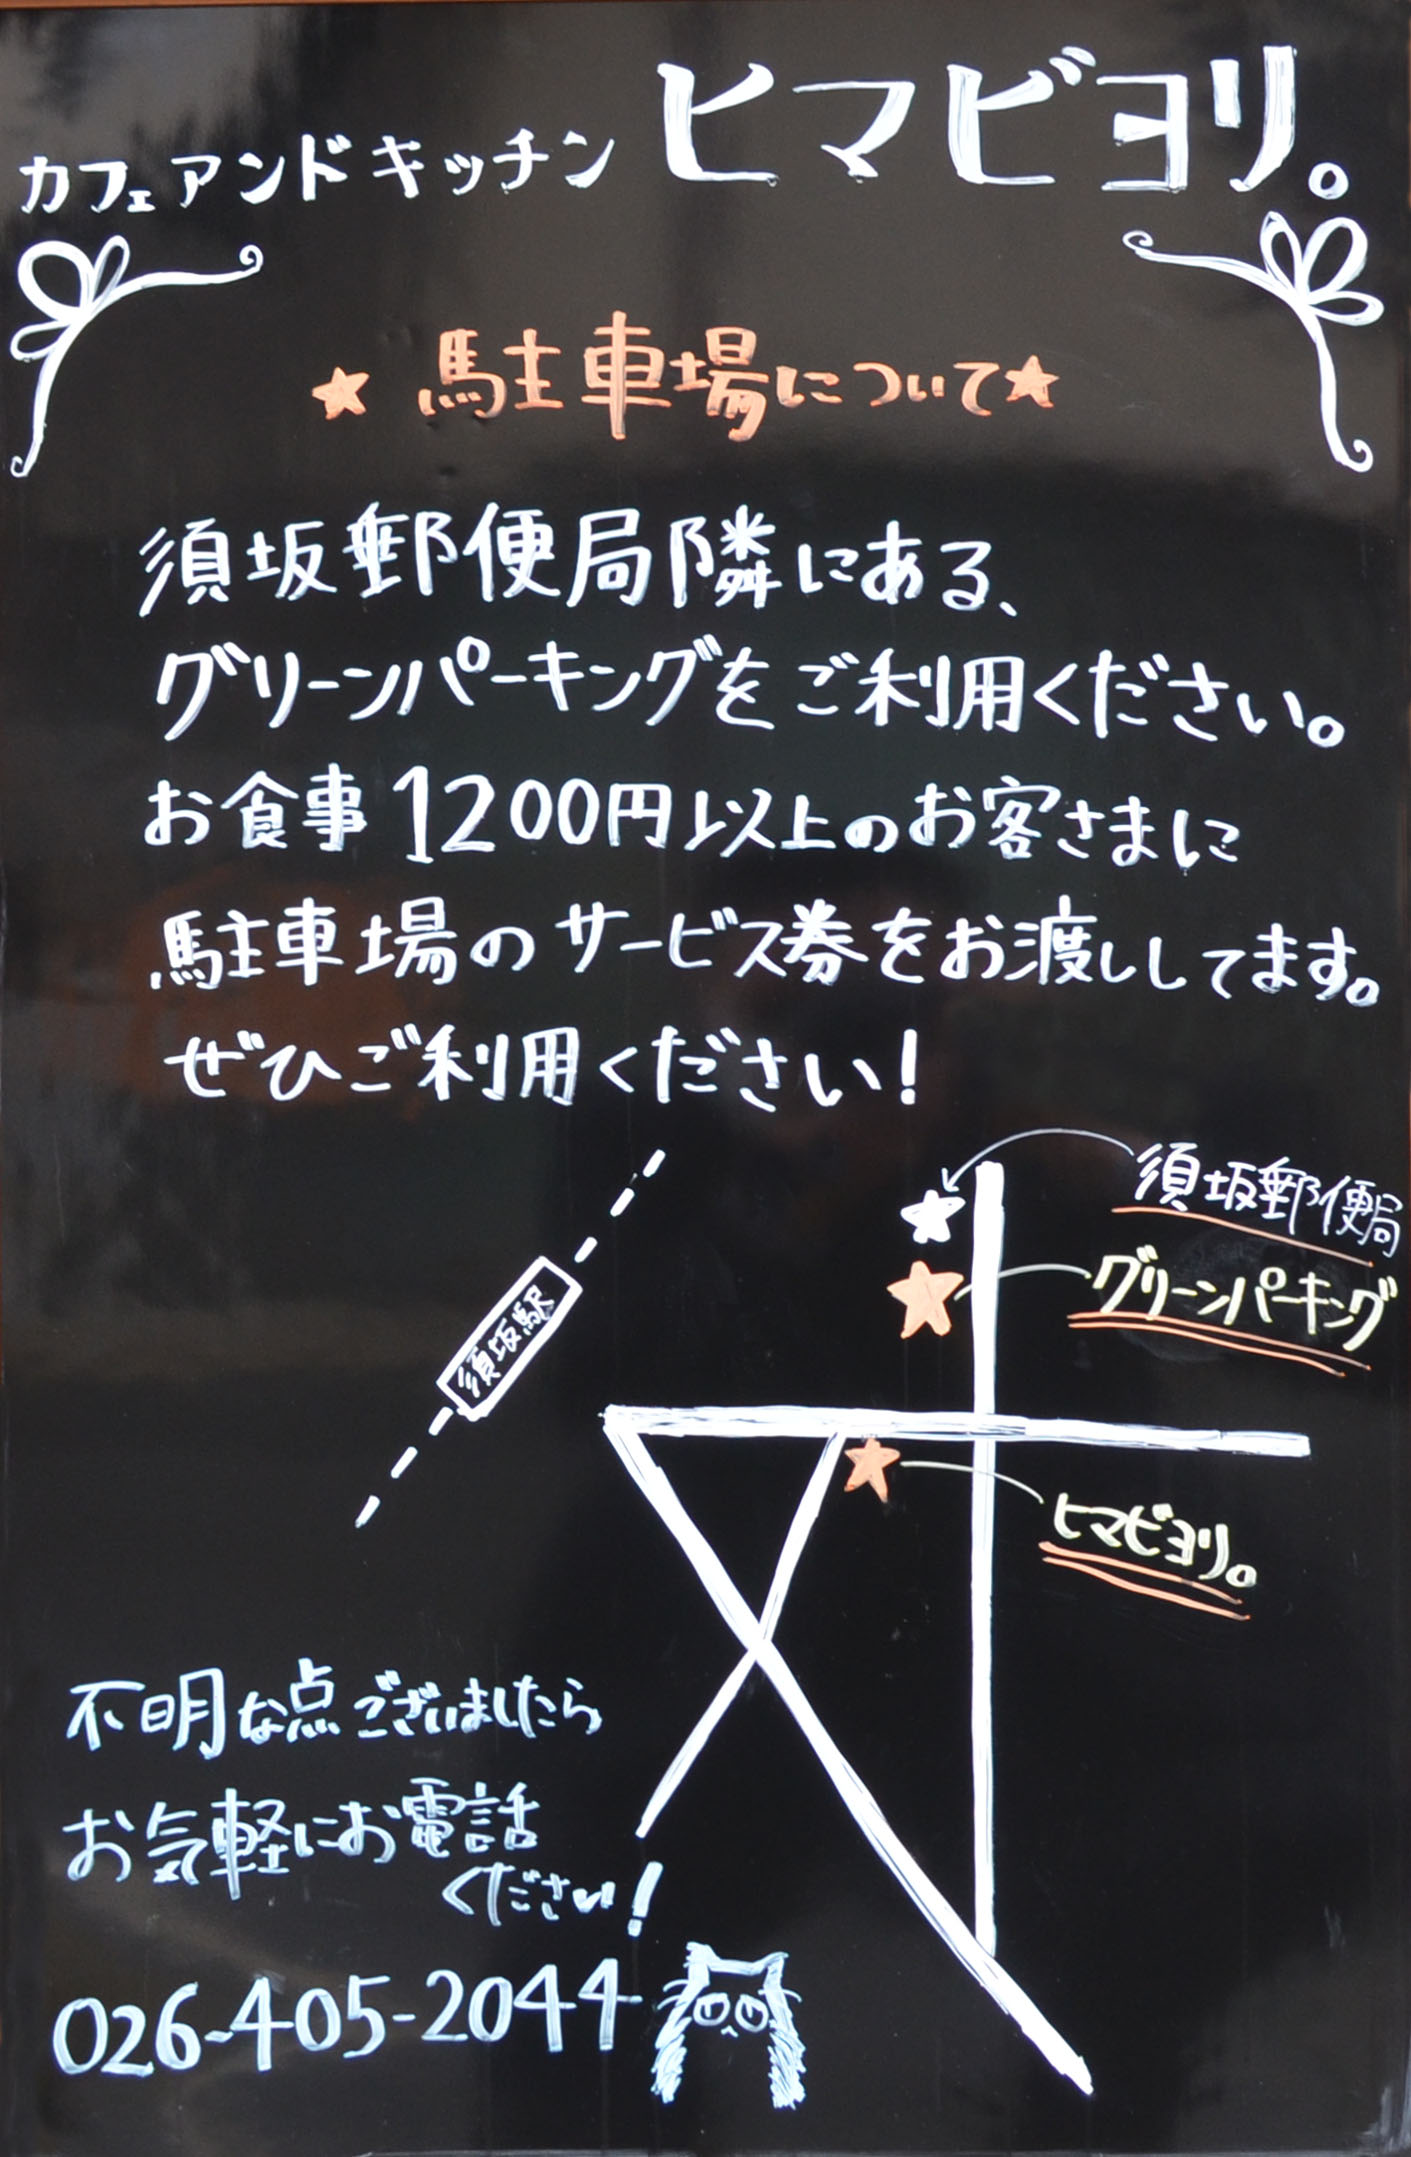 カフェアンドキッチン ヒマビヨリ。
★ 駐車場について★
須坂郵便局隣にある、
グリーンパーキングをご利用ください。
お食事1200円以上のお客さまに
駐車場のサービス券をお渡ししてます。
ぜひご利用ください!
須坂郵便局
グリーンパーキング
須坂駅
ヒマビヨリ。
不明な点ございましたら
お気軽にお電話
ください!
026-405-2044